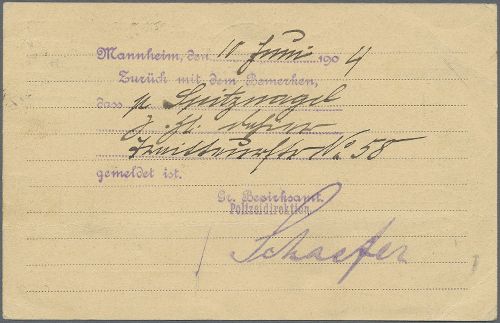 Mannheim, den 10 Juni 1904
Zurück mit dem Bemerken,
dass p. Spitznagel
z. Zt.
No 58
gemeldet ist.
Gr. Bezirksamt.
Polizeidirektion
Schaefer